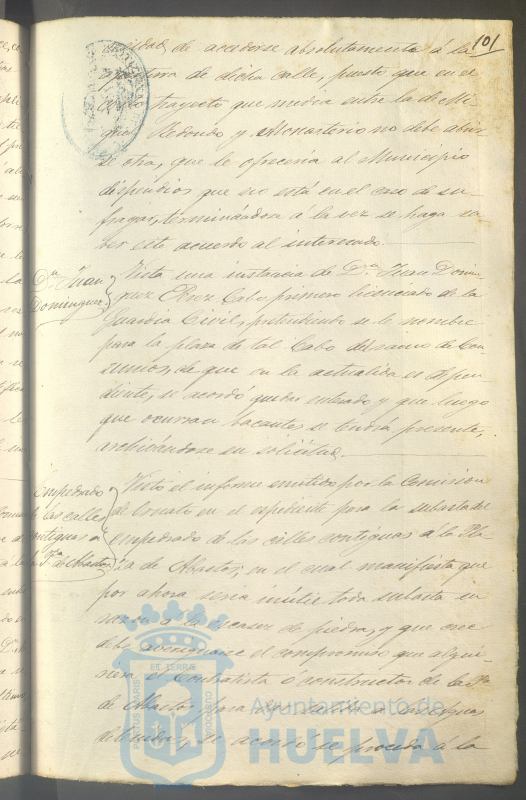 101
de accederse absolutamente á la
de dicha calle, puesto que en el
trayecto que media entre la de Mi-
Redondo y Monasterio no debe abrir-
se otra, que le ofreceria al Municipio
dispendios que no está en el caso de su-
fragar, terminándose á la vez se haga sa-
ber este acuerdo al interesado.
Dn. Juan
Dominguez
Vista una instancia de Dn. Juan Domin-
guez Cabo primero licenciado de la
Guardia Civil, pretendiendo se le nombre
para la plaza de tal Cabo del ramo de Con-
sumos, de que en la actualidad es depen-
diente, se acordó quedar enterado y que luego
que ocurran vacantes se tendrá presente,
archivándose su solicitud.
Empedrado
las calles
contiguas a
la Pza. de Abastos
Visto el informe emitido por la Comision
de Ornato en el espediente para la subasta del
empedrado de las calles contiguas á la Pla-
za de Abastos; en el cual manifiesta que
por ahora seria inútil toda subasta en
razon á la escasez de piedra, y que cree
debe averiguarse el compromiso que adqui-
riera el Contratista ó constructor de la Pza.
de Abastos para
se acordó se proceda á la
PORTUS MARIS
ET TERRAE
CUSTODIA
Ayuntamiento de
HUELVA